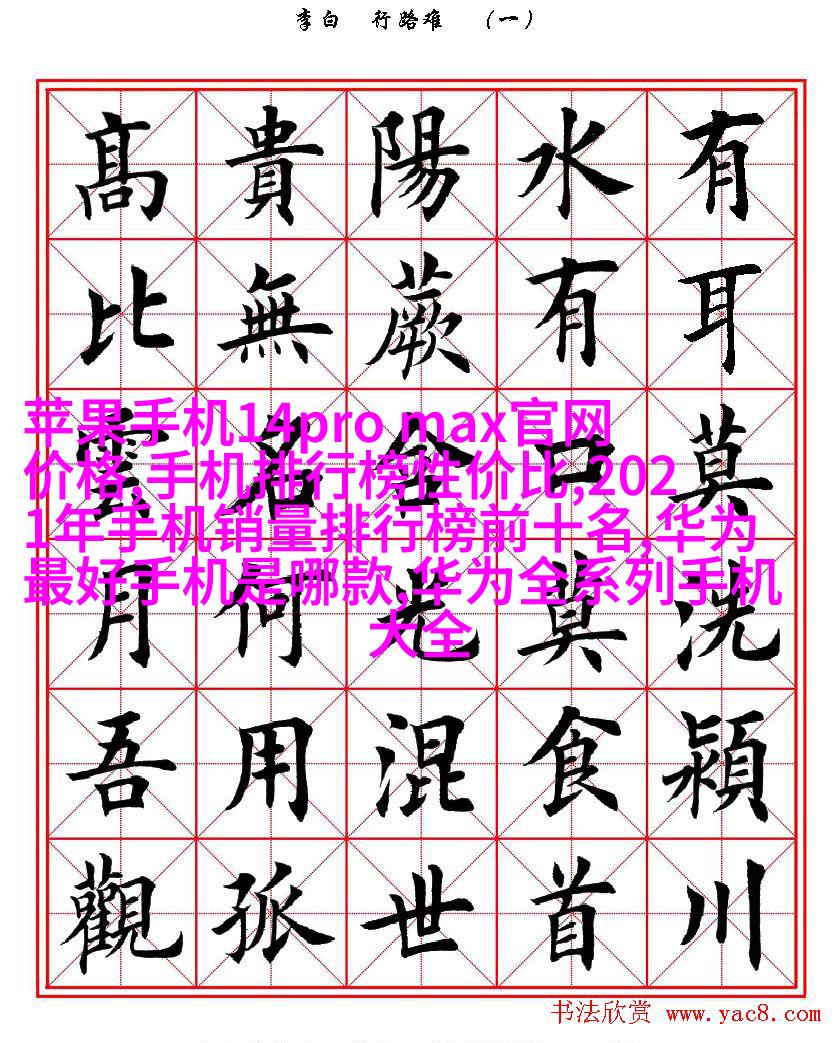 李白 行路难 （一）
有耳莫洗潁川
水有口莫食首
陽蕨含光混世
貴無名何用孤
髙比雲月吾觀
苹果手机14pro max官网
价格,手机排行榜性价比,202
1年手机销量排行榜前十名,华为
最好手机是哪款,华为全系列手机
大全
书法欣赏 www.yac8.com